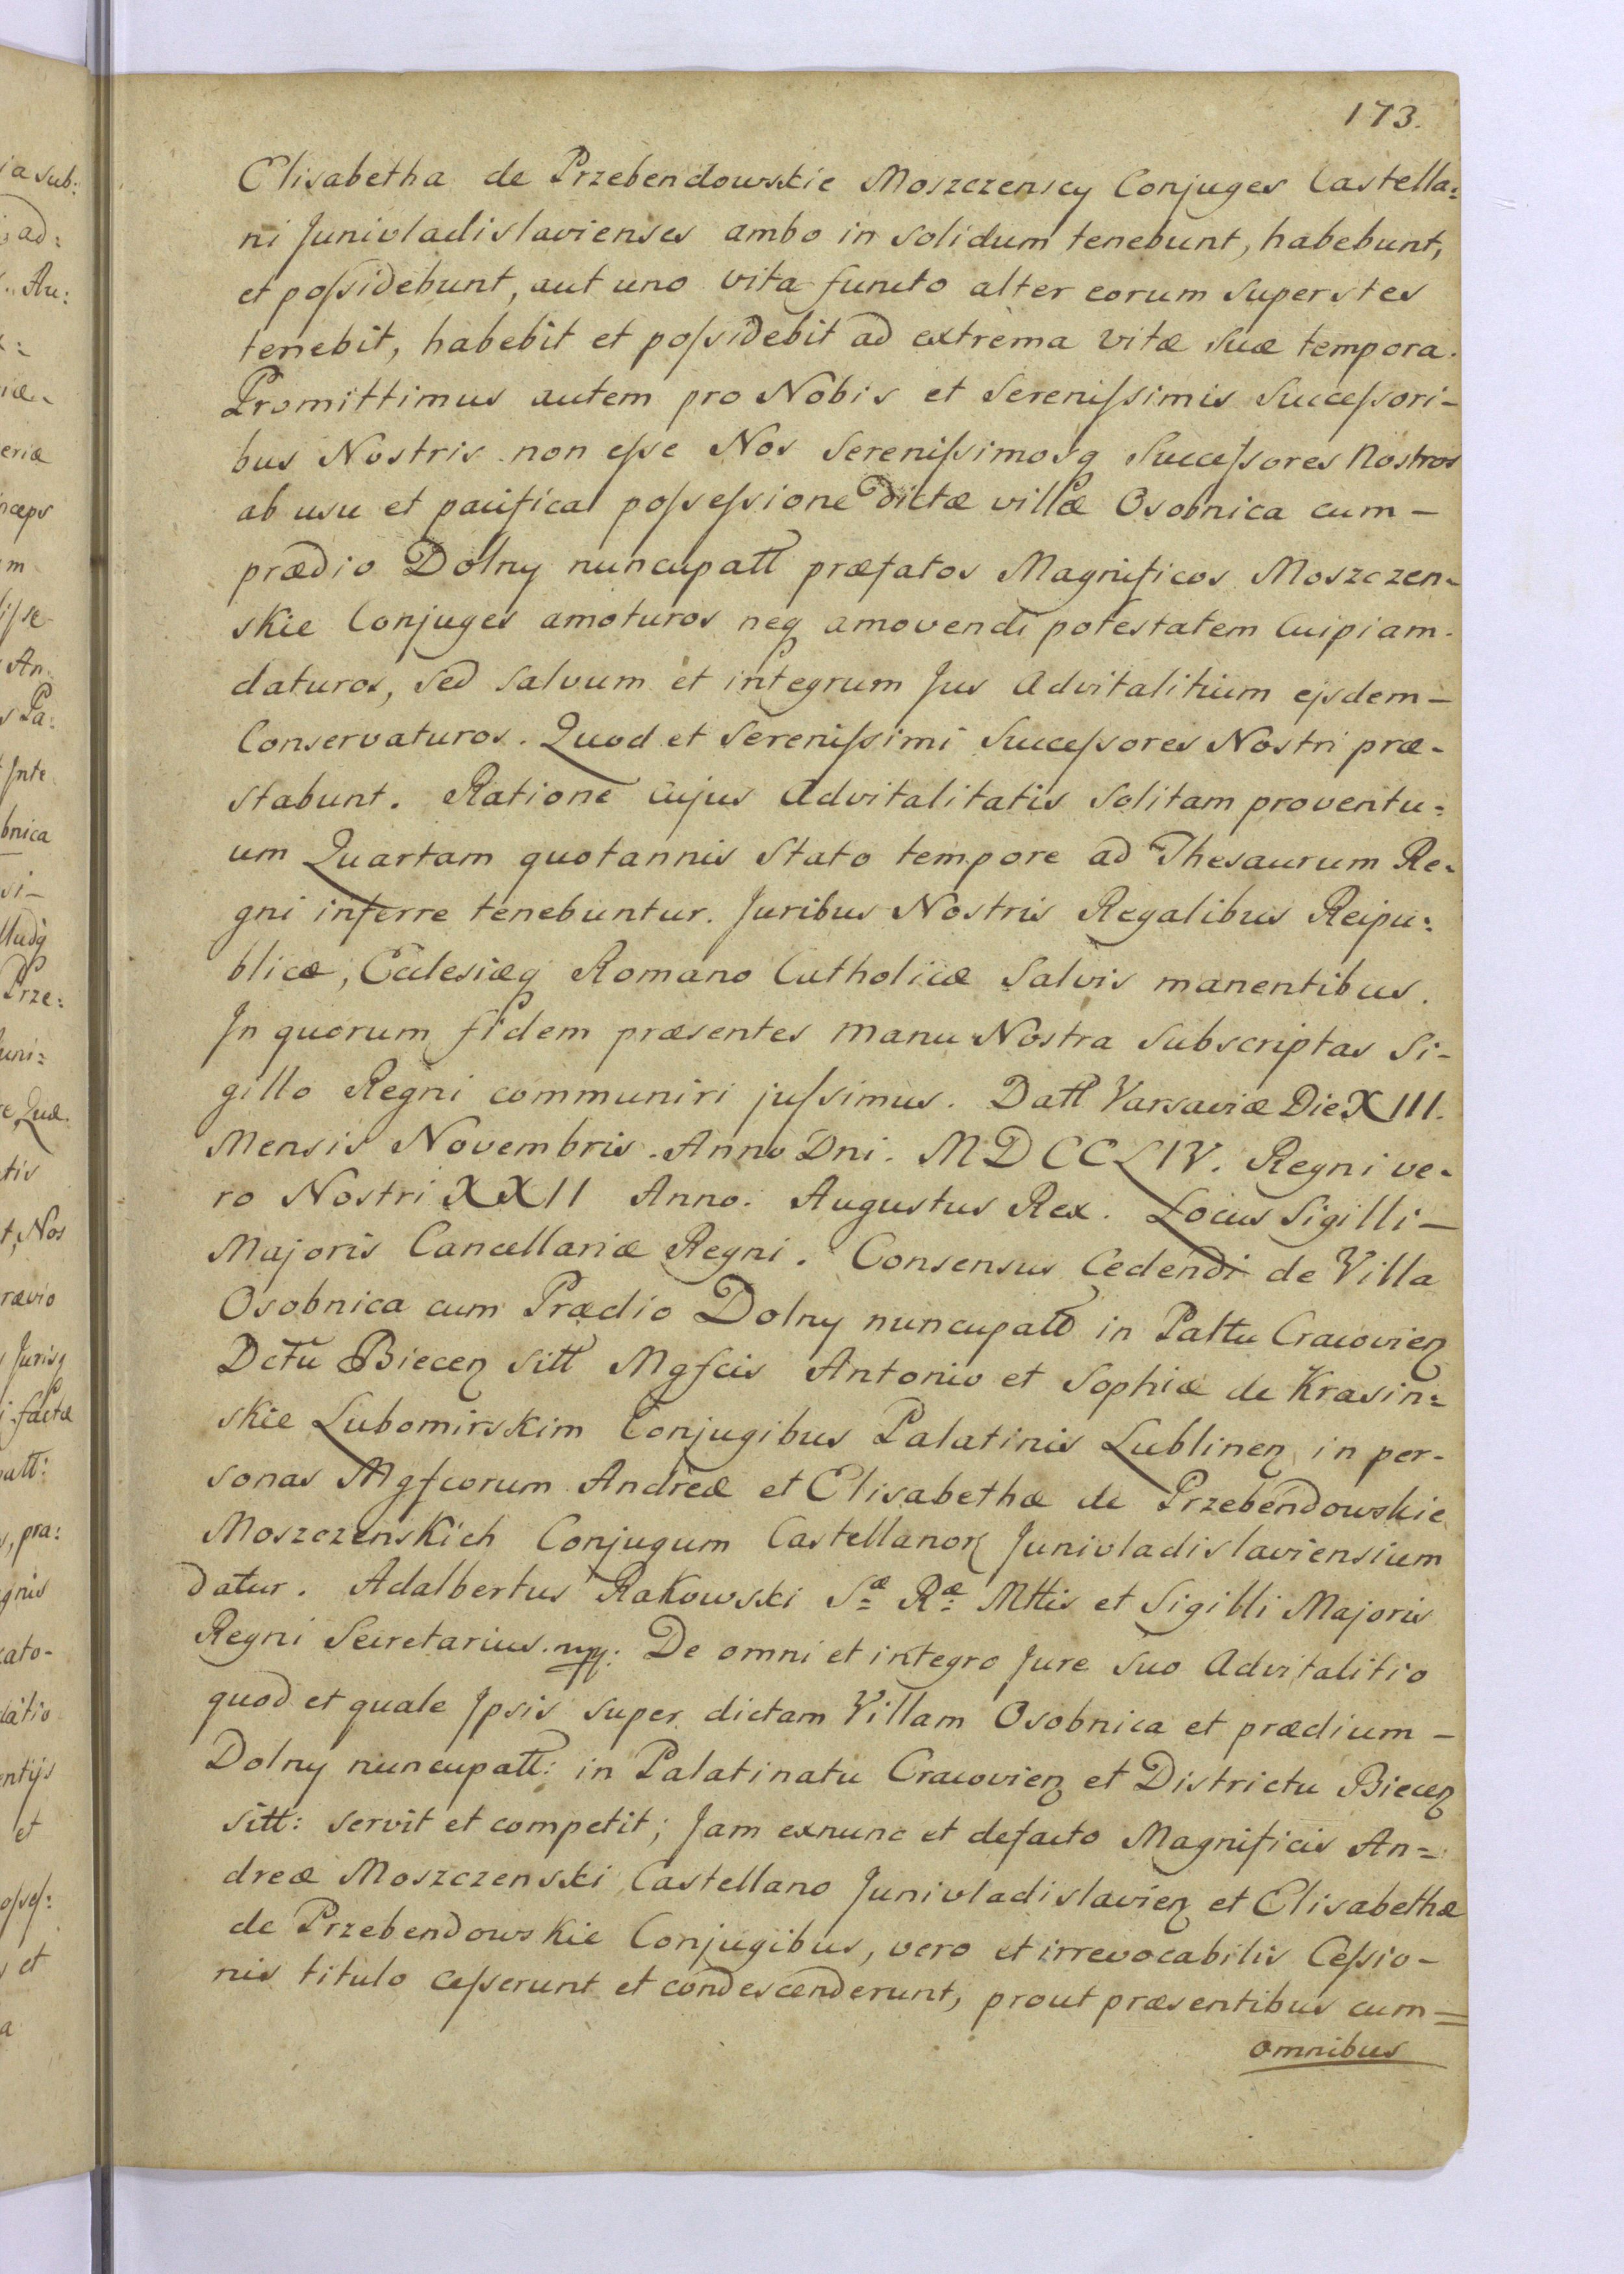 173.
Elisabetha de Przebendowskie Moszczenscy Conjuges Castella=
ni Junivladislavienses ambo in solidum tenebunt, habebunt,
et poſsidebunt, aut uno vita functo alter eorum superstes
tenebit, habebit et poſsidebit ad extrema vitæ suæ tempora.
Promittimus autem pro Nobis et Sereniſsimis Succeſsori-
bus Nostris non eſse Nos Sereniſsimosq Succeſsores Nostros
ab usu et pacifica poſseſsione dictæ villæ Osobnica cum -
prædio Dolny nuncupatt præfatos Magnificos Moszczen-
skie Conjuges amoturos neq amovendi potestatem cuipiam
daturos, sed salvum et integrum Jus Advitalitium ejsdem -
Conservaturos. Quod et Sereniſsimi Succeſsores Nostri præ-
stabunt. Ratione cujus Advitalitatis solitam proventu=
um Quartam quotannis stato tempore ad Thesaurum Re-
gni inferre tenebuntur. Juribus Nostris Regalibus Reipu=
blicæ, Ecclesiæq Romano Catholicæ Salvis manentibus.
In quorum fidem præsentes manu Nostra subscriptas Si-
gillo Regni communiri juſsimus. Datt Varsaviæ Die XIII.
Mensis Novembris. Anno Dni. MDCCLIV. Regni ve-
ro Nostri XXII Anno. Augustus Rex. Locus Sigilli -
Majoris Cancellariæ Regni. Consensus Cedendi de Villa
Osobnica cum Prædio Dolny nuncupatt in Pattu Cracovien
Dctu Biecen sitt Mgfcis Antonio et Sophiæ de Krasin=
skie Lubomirskim Conjugibus Palatinis Lublinen in per-
sonas Mgfcorum Andreæ et Elisabethæ de Przebendowskie
Moszczenskich Conjugum Castellanor Junivladislaviensium
datur. Adalbertus Rakowski Sæ Ræ Mttis et Sigilli Majoris
Regni Secretarius. mp. De omni et integro Jure suo Advitalitio
quod et quale Ipsis super dictam Villam Osobnica et prædium -
Dolny nuncupatt: in Palatinatu Cracovien et Districtu Biecen
sitt: servit et competit; Jam exnunc et defacto Magnificis An=
dreæ Moszczenski Castellano Junivladislavien et Elisabethæ
de Przebendowskie Conjugibus, vero et irrevocabilis Ceſsio-
nis titulo ceſserunt et condescenderunt, prout præsentibus cum=
omnibus